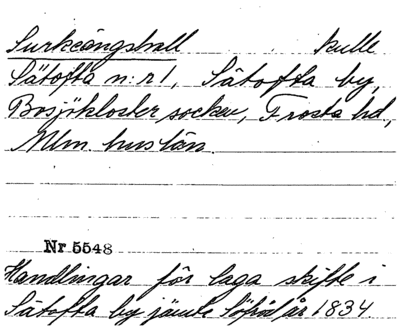 Surkeängshall kulle
Sätofta n:r 1, Sätofta by,
Bosjökloster socken, Frosta hd,
Mlm. hus län.
Nr 5548
Handlingar för laga skifte i
Sätofta by jämte Sjöholm år 1834.